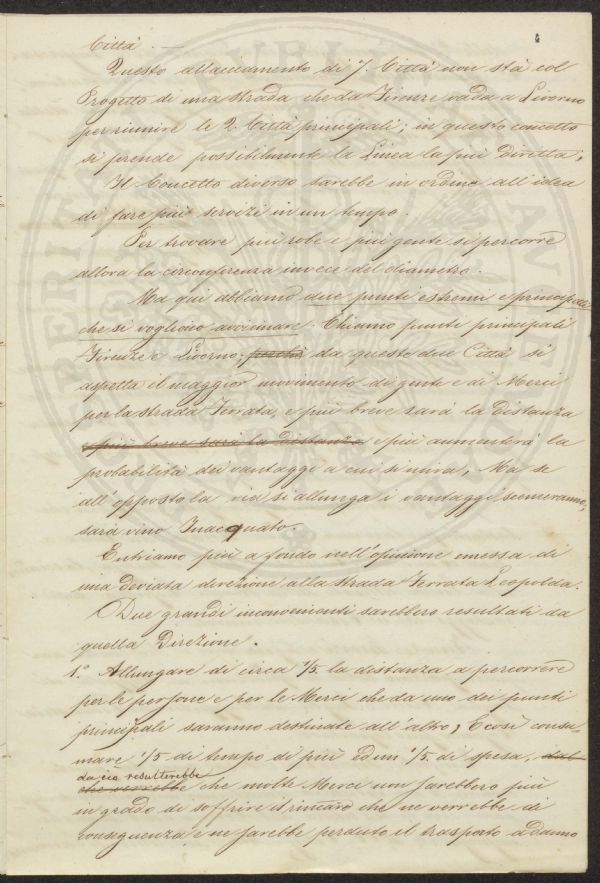 Città. —
Questo allacciamento di 7. Città non stà col
Progetto di una strada che da Firenze vada a Livorno
per riunire le 2. Città principali; in questo concetto
si prende possibilmente la Linea la più Diretta;
Il Concetto diverso sarebbe in ordine all'idea
di fare più servizi in un tempo.
Per trovare più robe e più gente si percorre
allora la circonferenza invece del diametro.
Ma qui abbiamo due punti estremi e principali
che si vogliono avvicinare. Chiamo punti principali
Firenze e Livorno; perchè da queste due Città si
aspetta il maggior movimento di gente e di Merci
per la strada Ferrata, e più breve sarà la Distanza
e più breve sarà la distanza e più aumenterà la
probabilità dei vantaggi a cui si mira; Ma se
all'opposto la via si allunga i vantaggi scemeranno,
sarà vino Inacquato.
Entriamo più a fondo nell'opinione emessa di
una deviata direzione alla strada Ferrata Leopolda.
Due grandi inconvenienti sarebbero resultati da
quella Direzione.
1.° Allungare di circa 1/5 la distanza a percorrere
per le persone e per le Merci che da uno dei punti
principali saranno destinate all'altro; E così consu-
mare 1/5 di tempo di più ed un 1/5. di spesa, dal
da ciò resulterebbe
che verrebbe che molte Merci non sarebbero più
in grado di soffrire il rincaro che ne verrebbe di
conseguenza e ne sarebbe perduto il trasporto a danno